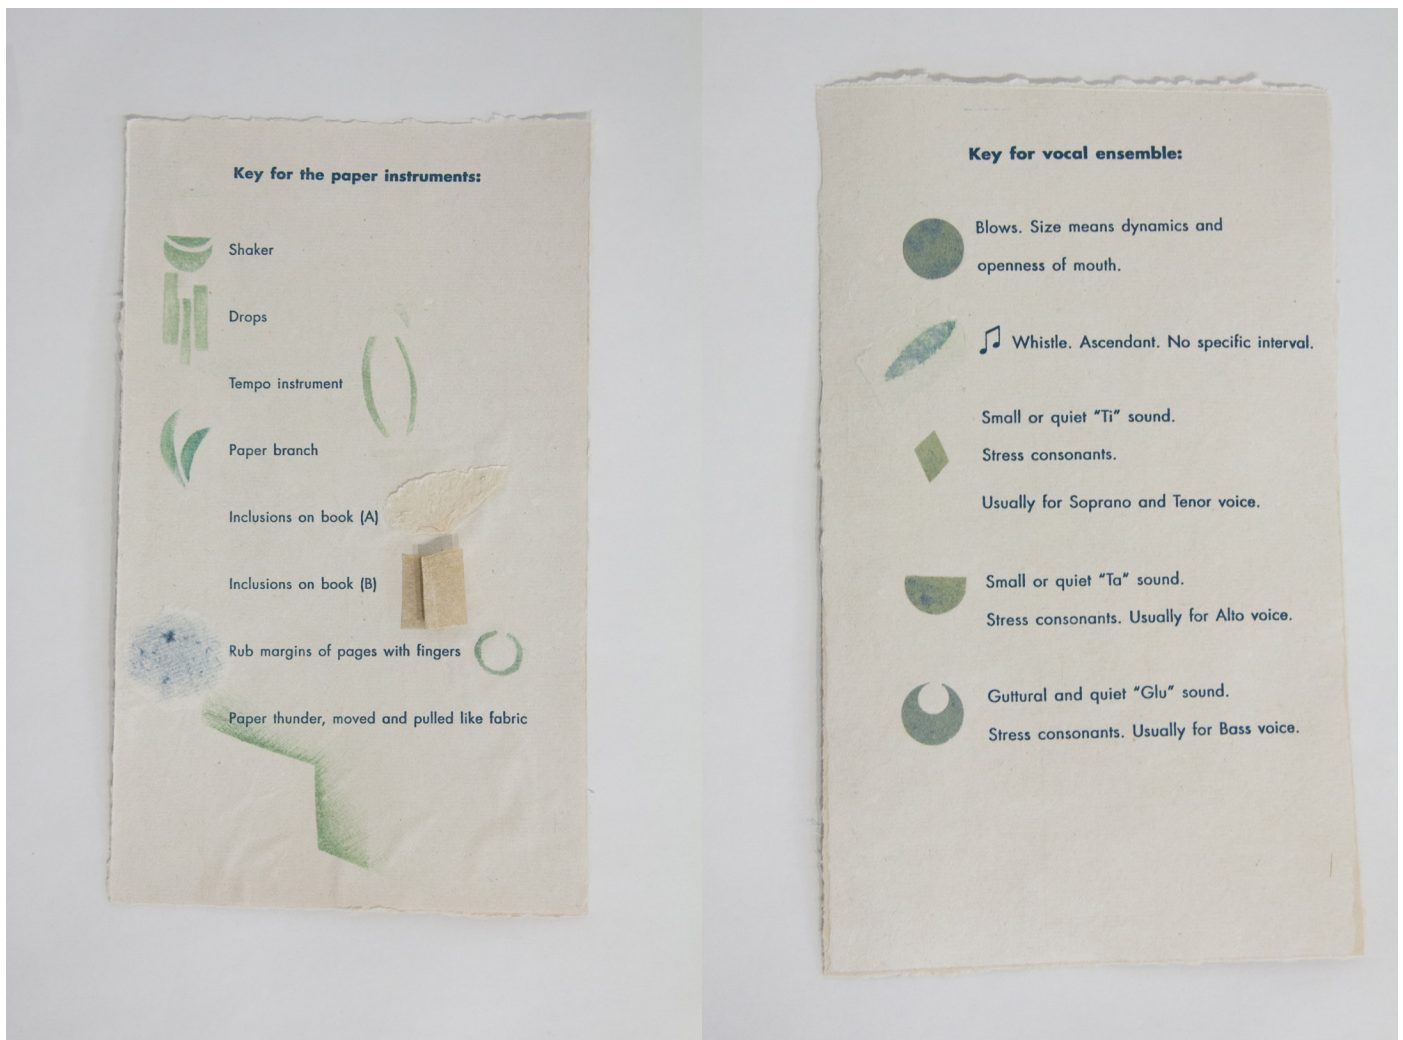 Key for the paper instruments:
Shaker
Drops
Tempo instrument
Paper branch
Inclusions on book (A)
Inclusions on book (B)
Rub margins of pages with fingers
Paper thunder, moved and pulled like fabric
Key for vocal ensemble:
Blows. Size means dynamics and
openness of mouth.
Whistle. Ascendant. No specific interval.
Small or quiet “Ti” sound.
Stress consonants.
Usually for Soprano and Tenor voice.
Small or quiet “Ta” sound.
Stress consonants. Usually for Alto voice.
Guttural and quiet “Glu” sound.
Stress consonants. Usually for Bass voice.